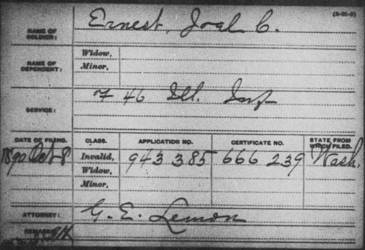 (3-20-3)
NAME OF SOLDIER: Ernest, Joal C.
NAME OF DEPENDENT: Widow,
Minor,
SERVICE: F 46 Ill. Inf
DATE OF FILING. CLASS. APPLICATION NO. CERTIFICATE NO. STATE FROM WHICH FILED.
1890 Oct 8 Invalid, 943385 666239 Wash.
Widow,
Minor,
ATTORNEY: G. E. Lemon
REMARKS: